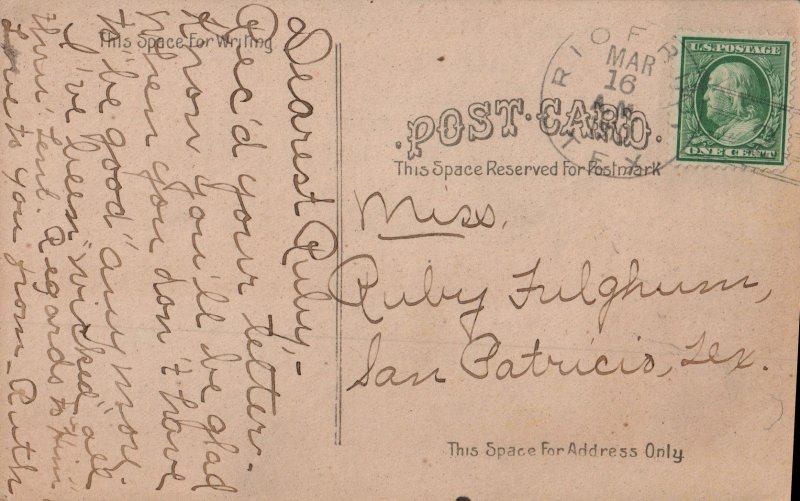 This Space For Writing
Dearest Ruby,-
Rec'd your letter-
know you'll be glad
when you don't have
to "be good" any more.
I've been "wicked" all
thru' Lent. Regards to "Him"
Love to you from - Ruth
RIO
TEX
MAR
16
A.M.
U.S. POSTAGE
ONE CENT
POST CARD.
This Space Reserved For Postmark
Miss.
Ruby Fulghum,
San Patricio, Tex.
This Space For Address Only.